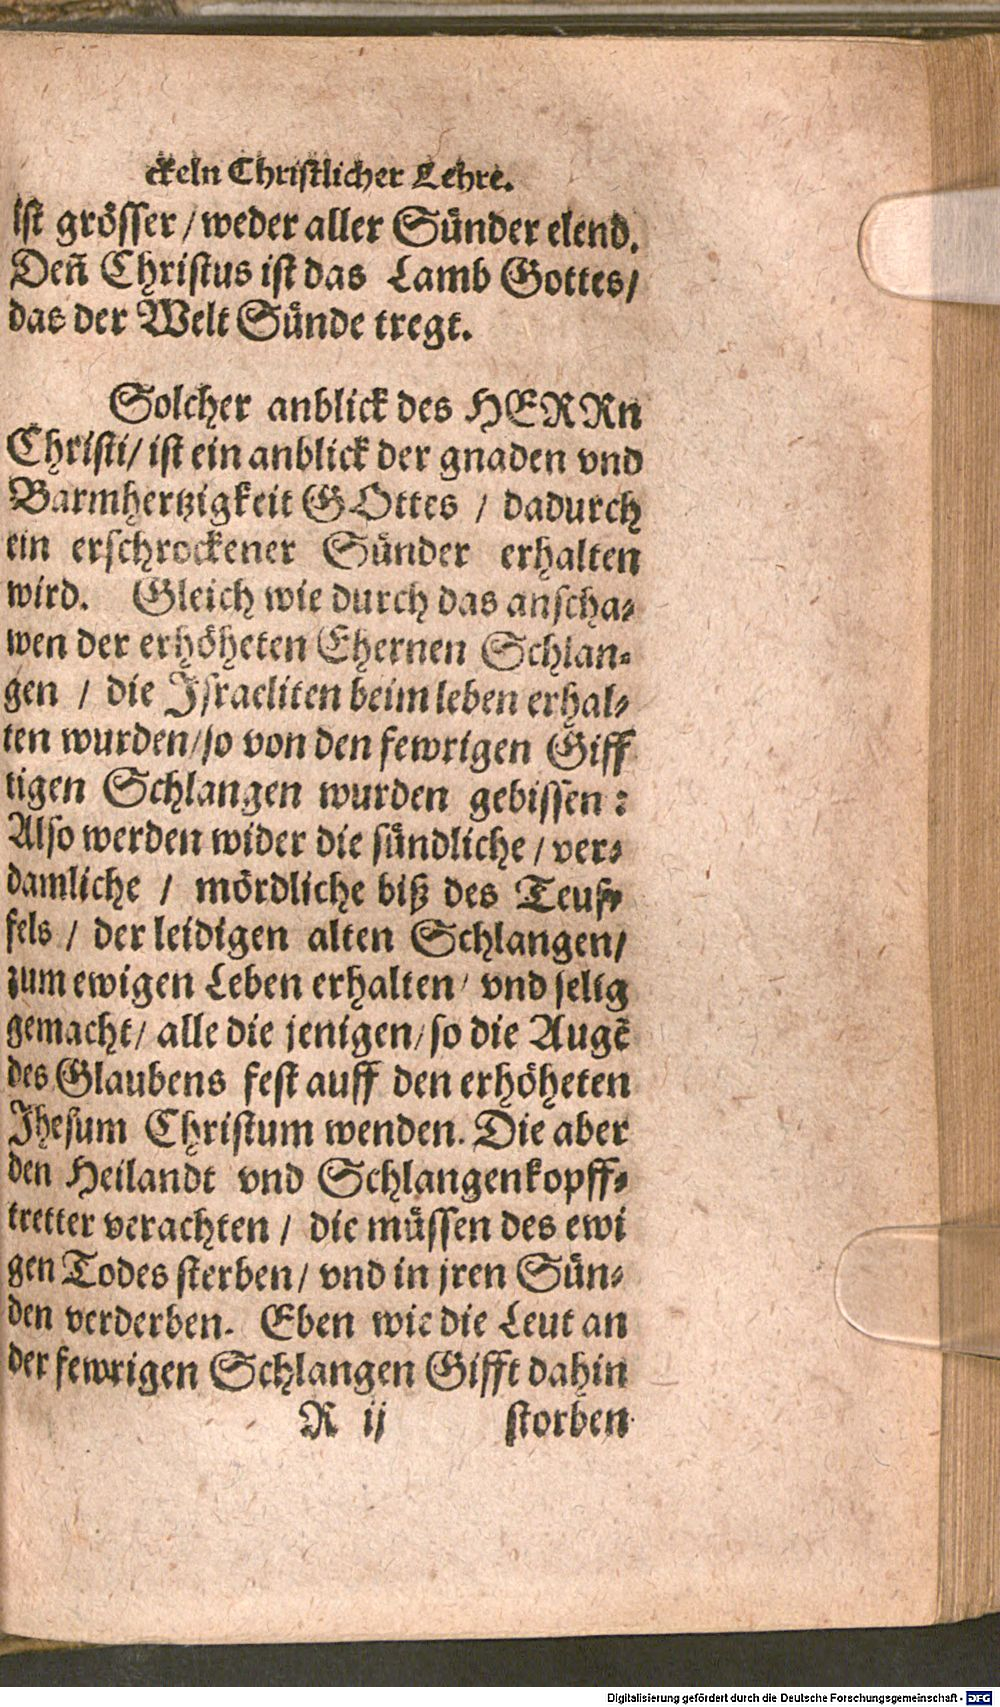 ckeln Christlicher Lehre.
ist grösser / weder aller Sünder elend.
Deñ Christus ist das Lamb Gottes /
das der Welt Sünde tregt.
Solcher anblick des HERRn
Christi / ist ein anblick der gnaden vnd
Barmhertzigkeit GOttes / dadurch
ein erschrockener Sünder erhalten
wird. Gleich wie durch das anscha⸗
wen der erhöheten Ehernen Schlan⸗
gen / die Israeliten beim leben erhal⸗
ten wurden / so von den fewrigen Giff
tigen Schlangen wurden gebissen :
Also werden wider die sündliche / ver⸗
damliche / mördliche biß des Teuf⸗
fels / der leidigen alten Schlangen /
zum ewigen Leben erhalten / vnd selig
gemacht / alle die jenigen / so die Augẽ
des Glaubens fest auff den erhöheten
Jhesum Christum wenden. Die aber
den Heilandt vnd Schlangenkopff⸗
tretter verachten / die müssen des ewi
gen Todes sterben / vnd in jren Sün⸗
den verderben. Eben wie die Leut an
der fewrigen Schlangen Gifft dahin
R ij storben
Digitalisierung gefördert durch die Deutsche Forschungsgemeinschaft - DFG